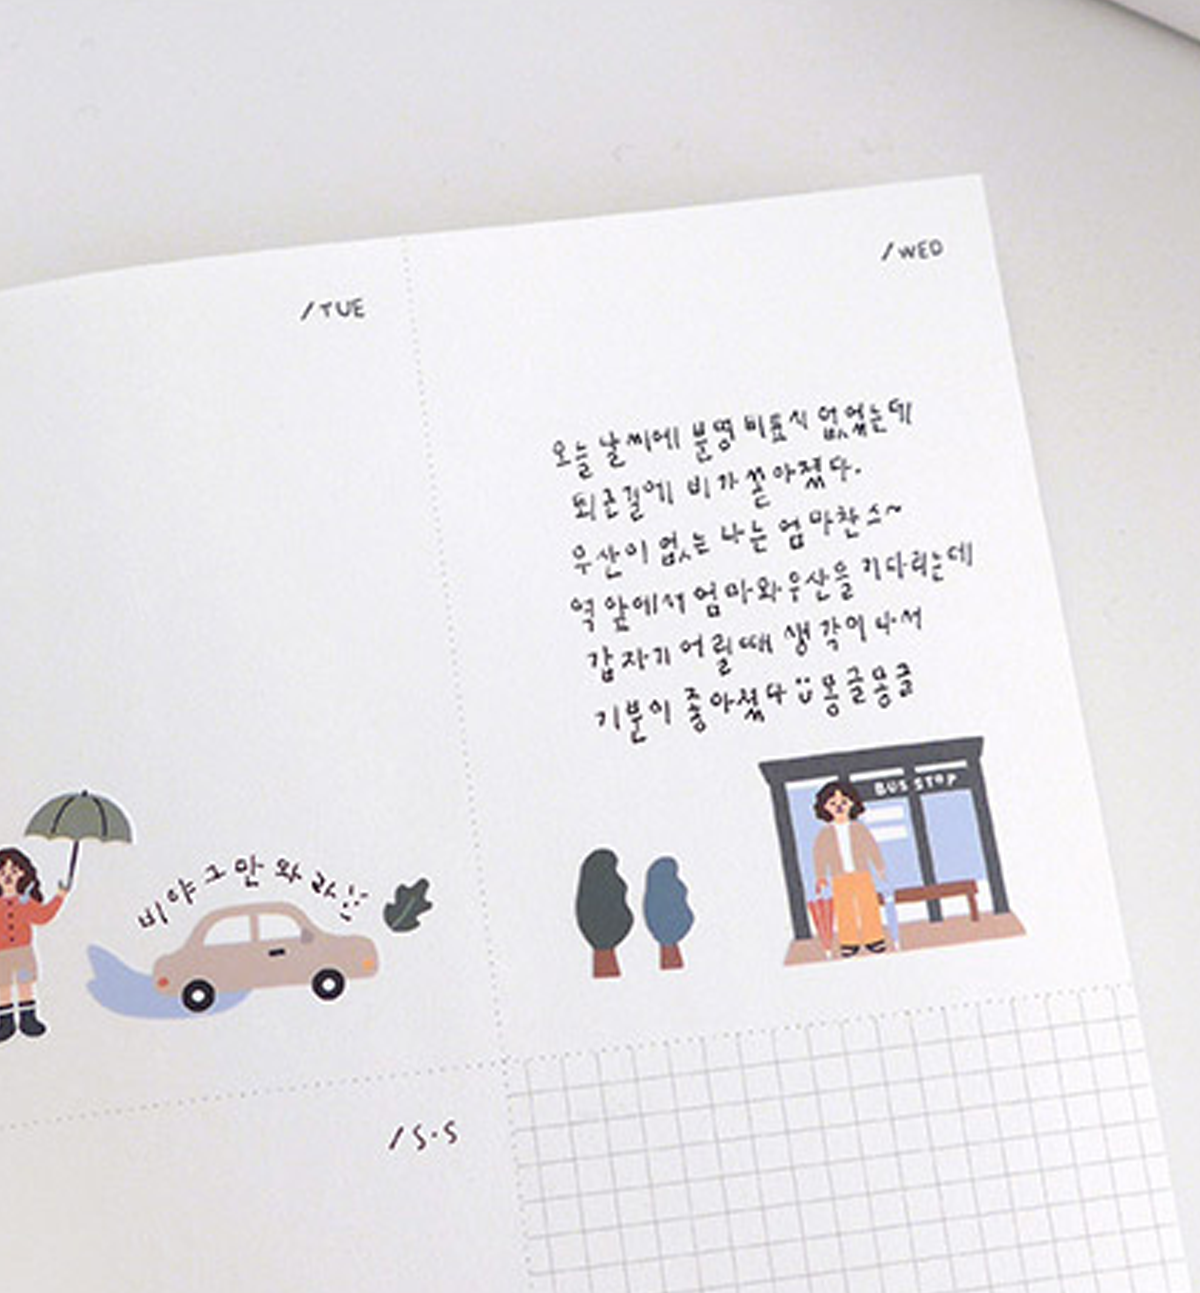 /TUE
비야 그만 와라
/WED
오늘 날씨에 분명 비표시 없었는데
퇴근길에 비가 쏟아졌다.
우산이 없는 나는 엄마찬스~
역 앞에서 엄마와 우산을 기다리는데
갑자기 어릴때 생각이 나서
기분이 좋아졌다 몽글몽글
BUS STOP
/S·S